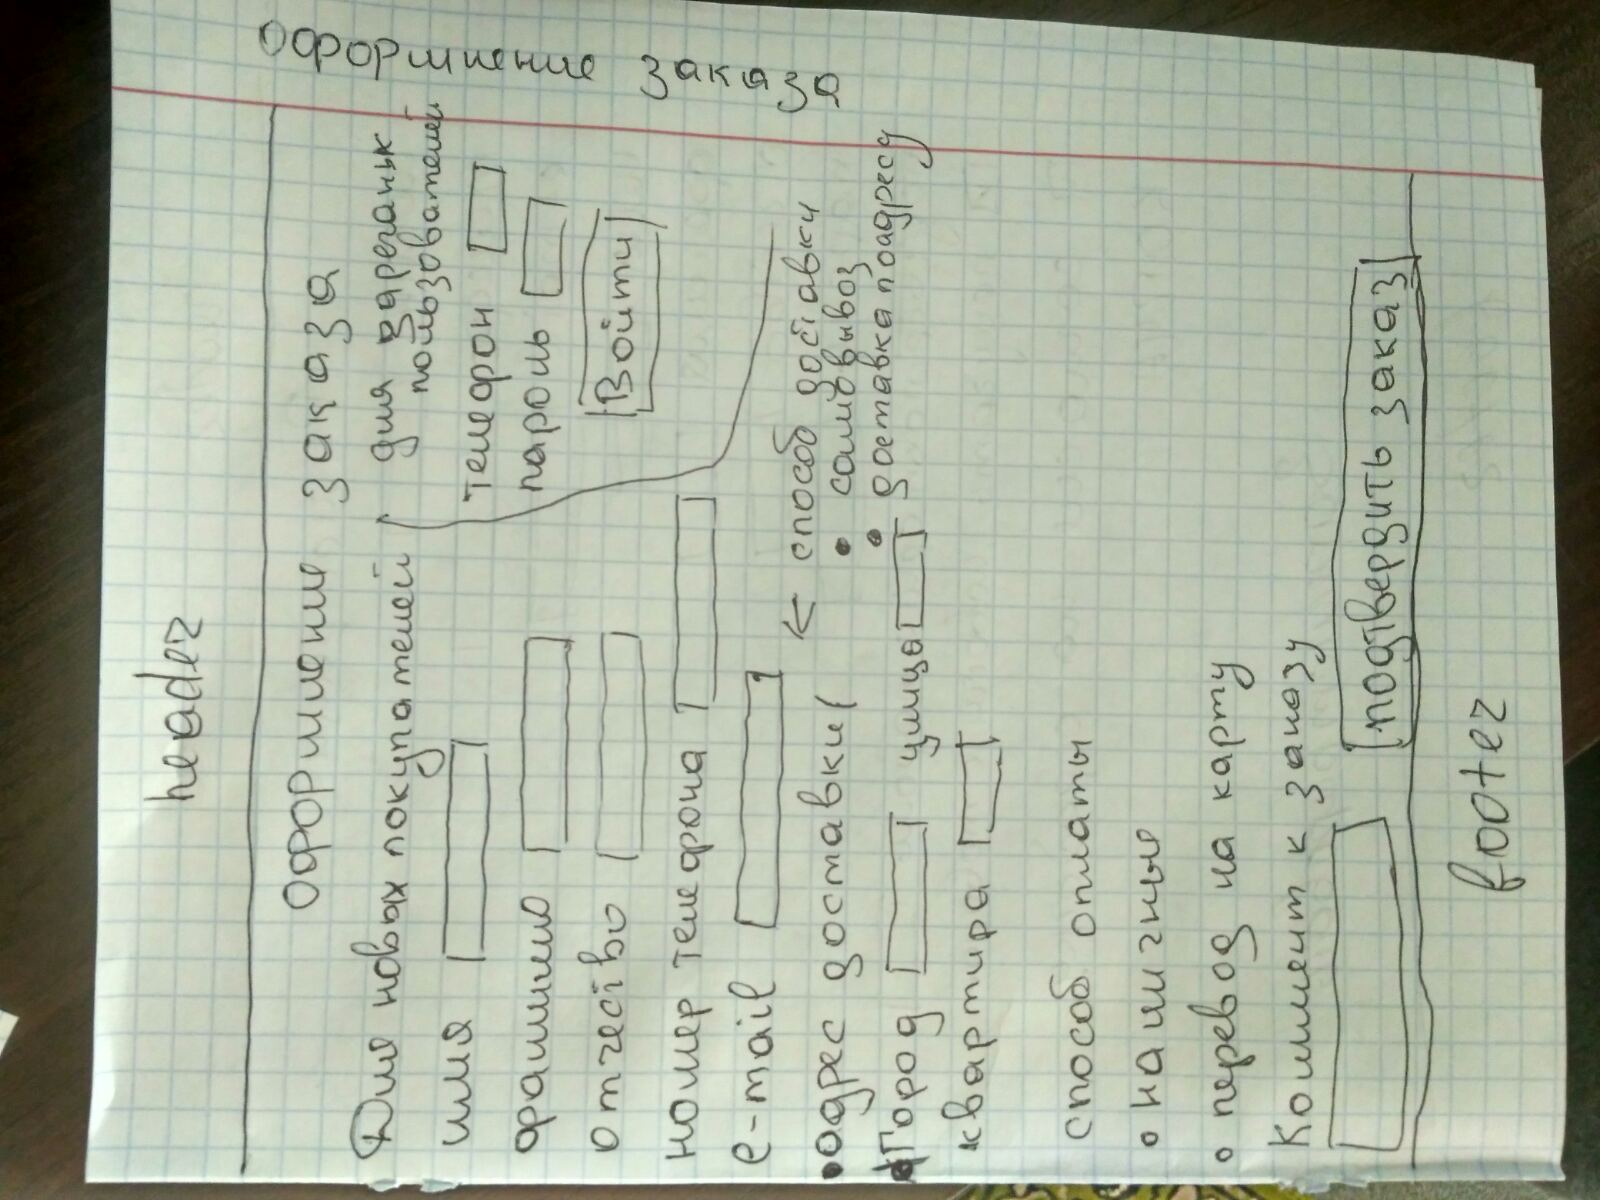 header
оформление заказа
Для новых покупателей
имя
фамилию
отчество
номер телефона
e-mail
адрес доставки
Город улица
квартира
для зареганых
пользователей
телефон
пароль
Войти
← способ доставки
• самовывоз
• доставка по адресу
способ оплаты
• наличные
• перевод на карту
Коммент к заказу
подтвердить заказ
footer
оформление заказа